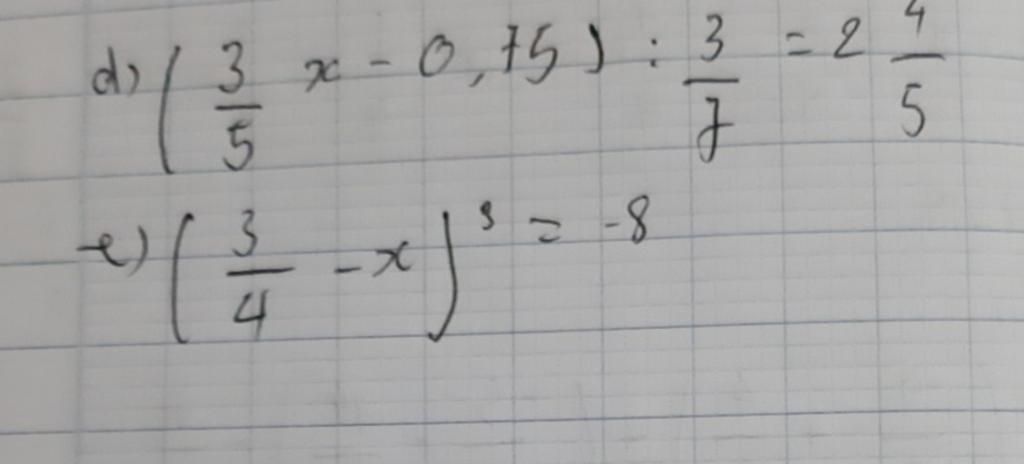 d) ( 3/5 x - 0,75 ) : 3/7 = 2 4/5
e) ( 3/4 - x )³ = -8